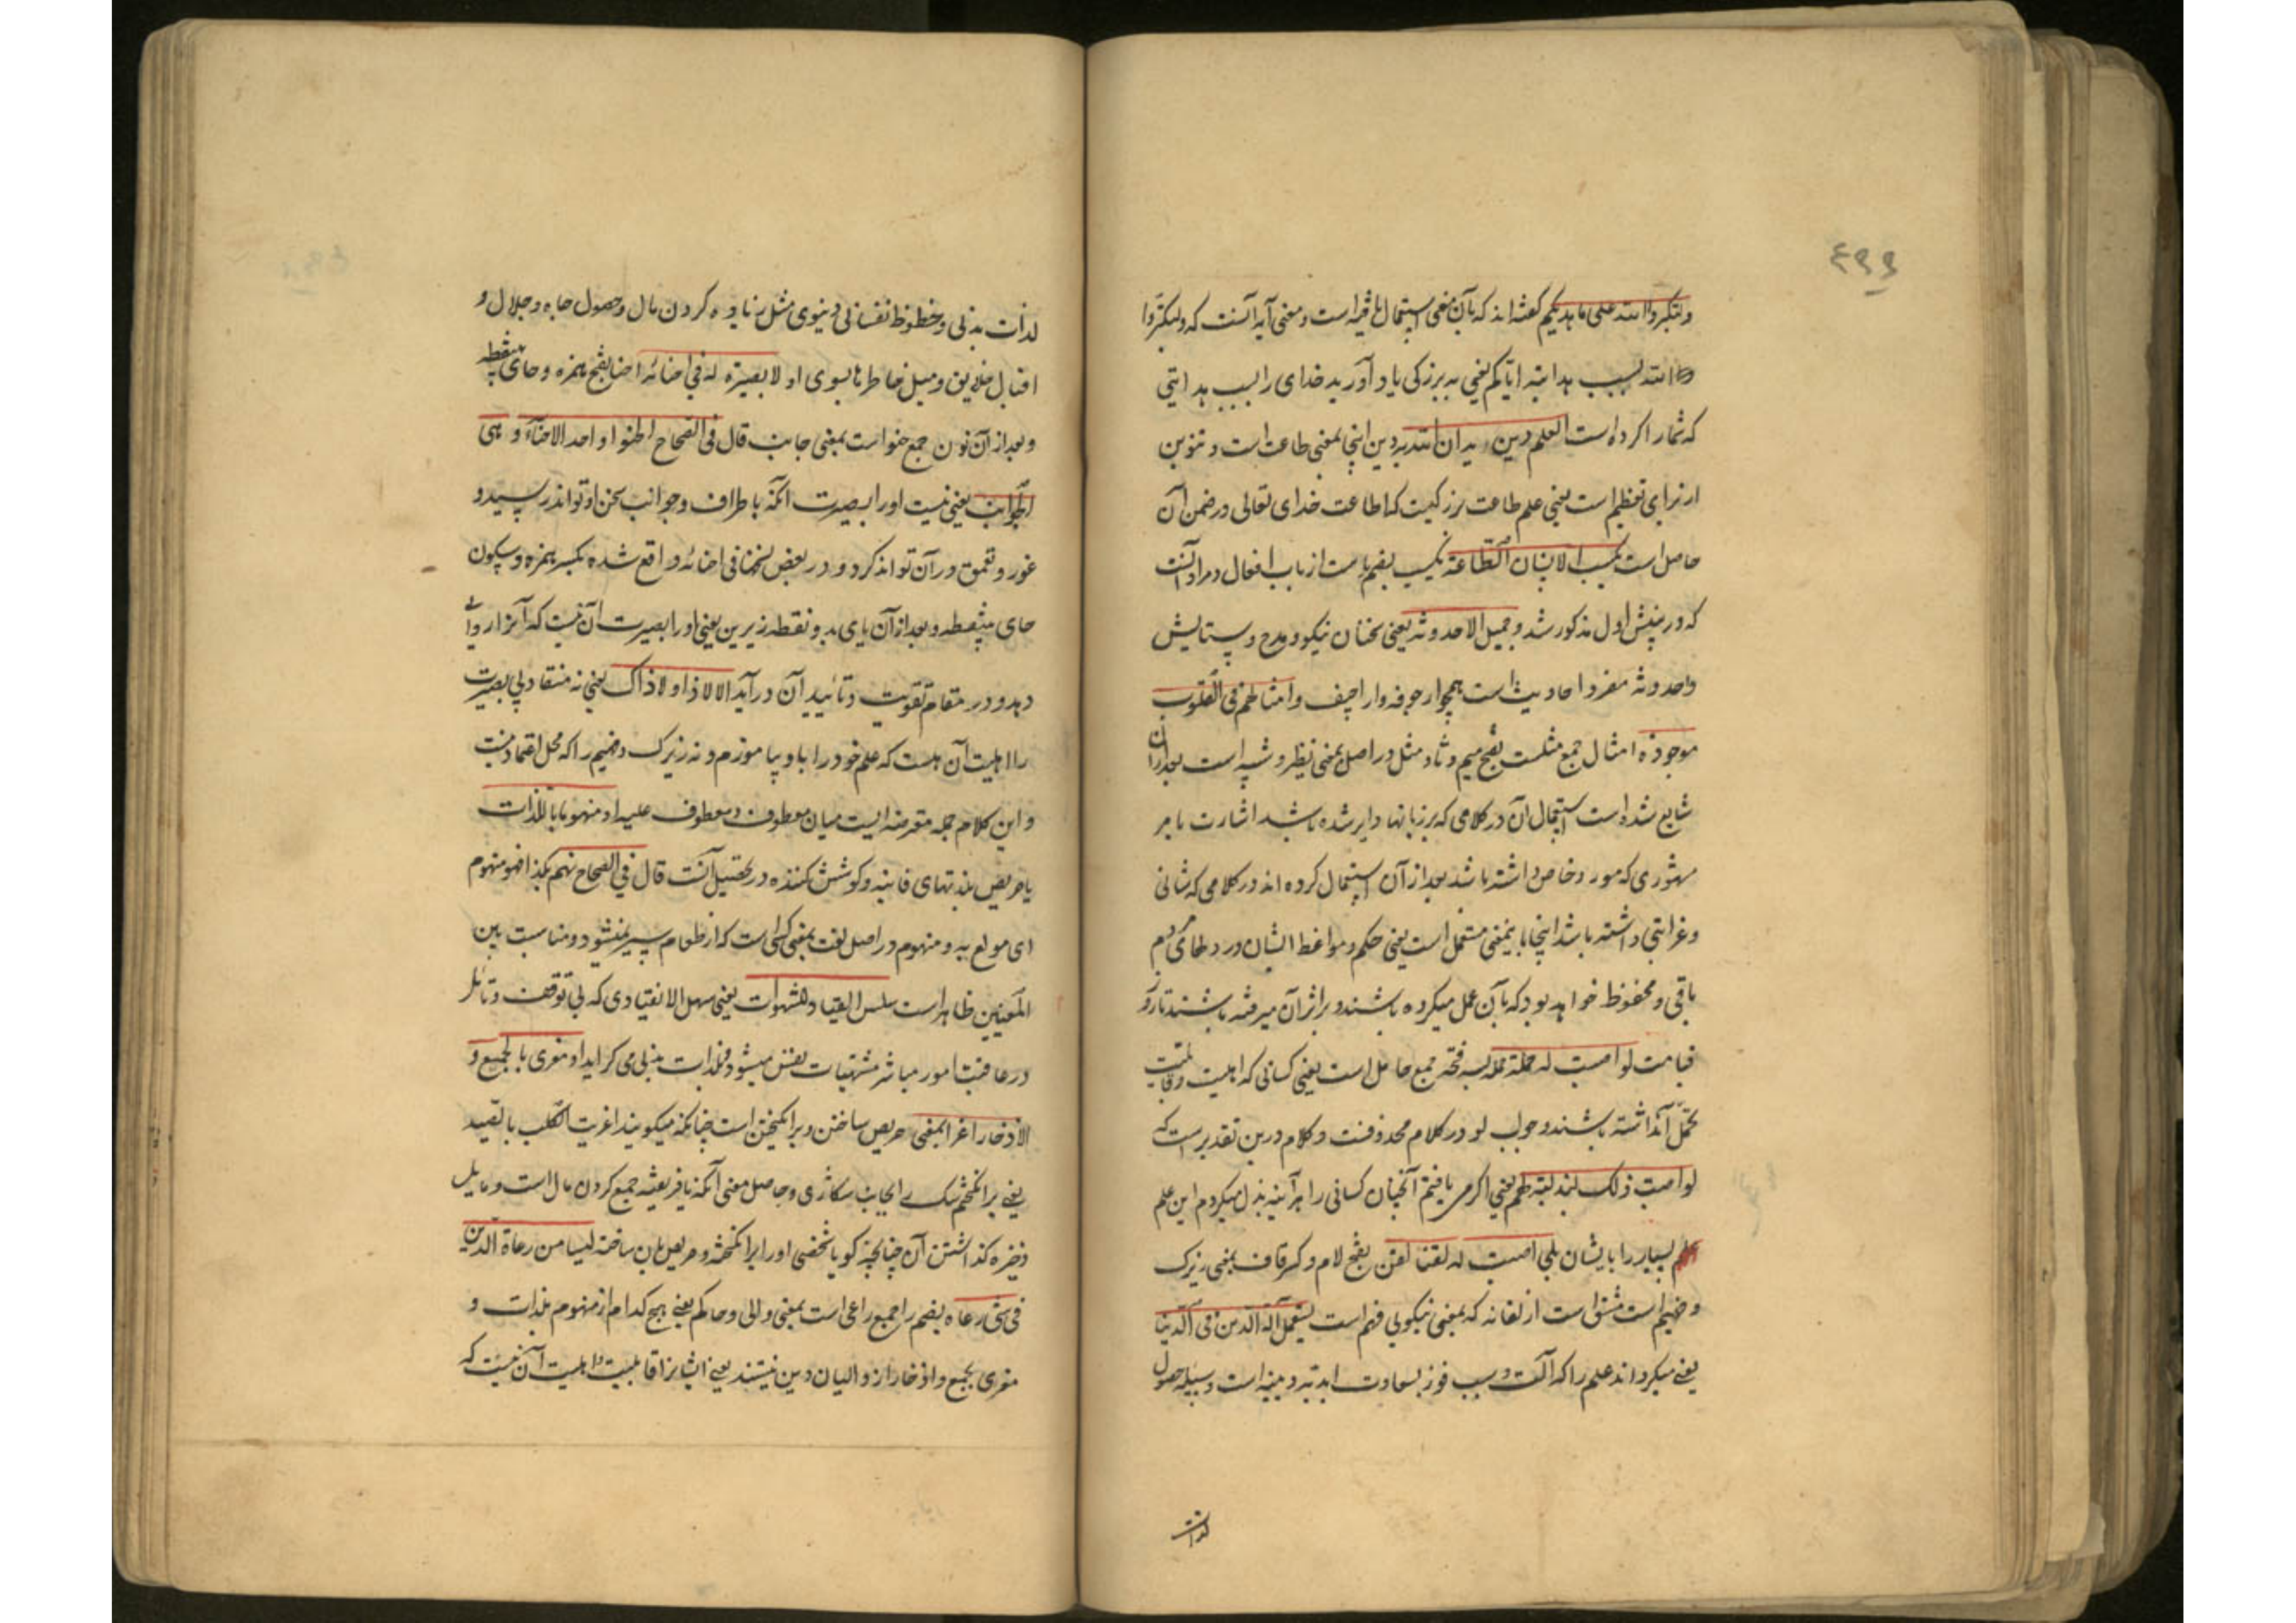 ۴۹۹
ولتکبروا الله علی ما هدیکم گفته‌اند که بآن معنی استعمال یافته است و معنی آیه آنست که ولتکبروا
الله بسبب هدایته ایاکم یعنی به بزرگی یاد آورید خدای را بسبب هدایتی
که شما را کرده است العلم دین یدان الله به دین اینجا بمعنی طاعت است و تنوین
از برای تعظیم است یعنی علم طاعت بزرگیست که اطاعت خدای تعالی در ضمن آن
حاصل است یکسب الانسان الطاعة یکسب بضم یاست از باب افعال و مراد آنست
که در پیش اول مذکور شد و جمیل الاحدوثه یعنی سخنان نیکو و مدح و ستایش
واحدوثه مفرد احادیث است همچو ارجوفه واراجیف وامثالهم فی القلوب
موجودة امثال جمع مثلست بفتح میم و ثاء و مثل در اصل بمعنی نظیر و شبه است بعد از آن
شایع شده است استعمال آن در کلامی که بر زبانها دایر شده باشد اشارت بامر
مشهوری که مورد خاص داشته باشد بعد از آن استعمال کرده اند در کلامی که شانی
وغرابتی داشته باشد اینجا باینمعنی مستعمل است یعنی حکم ومواعظ ایشان در دلهای مردم
باقی و محفوظ خواهد بود که بآن عمل میکرده باشند و بر اثر آن میرفته باشند تا روز
قیامت لو اصبت له حملة حمله بسه فتحه جمع حامل است یعنی کسانی که اهلیت وقابلیت
تحمل آن داشته باشند و جواب لو در کلام محذوفست و کلام درین تقدیر است که
لو اصبت ذلک لبذلته لهم یعنی اگر می یافتم آنچنان کسانی را هر آینه بذل میکردم این علم
بسیار را بایشان بلی اصبت له لقنا لقن بفتح لام و کسر قاف بمعنی زیرک
و فهیم است مشتق است از لقانه که بمعنی نیکویی فهم است یستعمل آلة الدین فی الدنیا
یعنی میگرداند علم را که آلت و سبب فوز بسعادت ابدیه دینیه است وسیله حصول
لذات
لذات بدنی وحظوظ نفسانی دنیوی مثل زیاده کردن مال وحصول جاه وجلال و
اقبال خلایق ومیل خاطرها بسوی او لا بصیرة له فی احنائه احنا بفتح همزه وحای بینقطه
وبعد از آن نون جمع حنو است بمعنی جانب قال فی الصحاح الحنو واحد الاحناء وهی
الجوانب یعنی نیست او را بصیرت آنکه باطراف وجوانب سخن او تواند رسید و
غور وتعمق در آن تواند کرد ودر بعض نسخها فی احیائه واقع شده بکسر همزه وسکون
حای بینقطه وبعد از آن یای بدو نقطه زیرین یعنی او را بصیرت آن نیست که آنرا رواج
دهد ودر مقام تقویت وتایید آن درآید الا لا ذا ولا ذاک یعنی نه منقاد بی بصیرت
را اهلیت آن هست که علم خود را باو بیاموزم ونه زیرک وفهیم را که محل اعتماد نیست
واین کلام جمله معترضه ایست میان معطوف ومعطوف علیه او منهوما باللذات
یا حریص بلذتهای فانیه وکوشش کننده در تحصیل آنست قال فی الصحاح نهم بکذا فهو منهوم
ای مولع به ومنهوم در اصل لغت بمعنی کسی است که از طعام سیر نمیشود ومناسبت بین
المعنیین ظاهر است سلس القیاد للشهوات یعنی سهل الانقیادی که بی توقف وتامل
در عاقبت امور مباشر مشتهیات نفس میشود وبلذات بدنی می گراید او مغری بالجمع و
الادخار اغرا بمعنی حریص ساختن وبرانگیختن است چنانکه میگویند اغریت الکلب بالصید
یعنی برانگیختم سگ را بجانب شکاری وحاصل معنی آنکه یا فریفته جمع کردن مال است ومایل
ذخیره گذاشتن آن چنانچه گویا شخصی او را برانگیخته وحریص بآن ساخته لیسا من رعاة الدین
فی شی رعاه بضم را جمع راعی است بمعنی والی وحاکم یعنی هیچ کدام از منهوم بلذات و
مغری بجمع وادخار از والیان دین نیستند یعنی ایشانرا قابلیت واهلیت آن نیست که